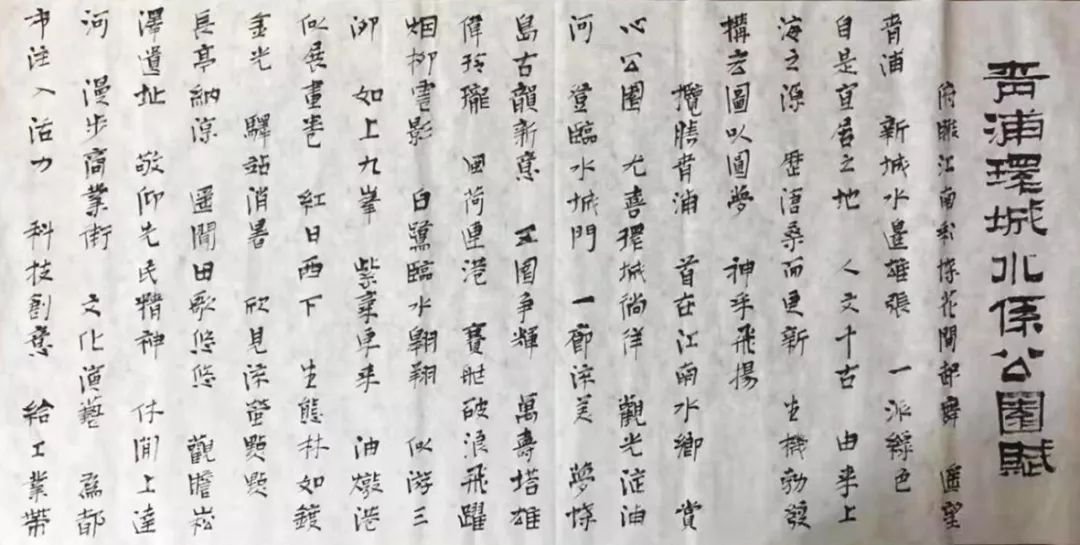 青浦環城水系公園賦
俯瞰江南彩蝶花間起舞 遥望
青浦 新城水邊雄張 一派綠色
自是宜居之地 人文千古 由来上
海之源 歷滄桑而更新 生機勃發
構宏圖以圖夢 神乎飛揚
攬勝青浦 首在江南水鄉 賞
心公園 尤喜環城徜徉 觀光淀浦
河 登臨水城門 一廊淙美 夢蝶
島古韻新意 五園爭輝 萬壽塔雄
偉玲瓏 風荷連港 賽艇破浪飛躍
烟柳雲影 白鷺臨水翱翔 似游三
泖 如上九峯 紫氣東来 油墩港
似展畫卷 紅日西下 生態林如鍍
金光 驛站消暑 欣見流螢點點
長亭納涼 遥聞田歌悠悠 觀瞻崧
澤遺址 敬仰先民精神 休閒上達
河 漫步商業街 文化演藝 爲都
市注入活力 科技創意 給工業帶